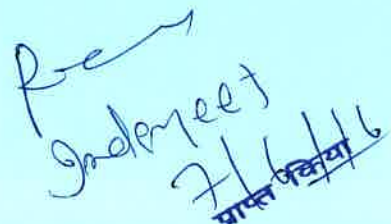 Inderjeet
7/6/16
प्राप्त किया